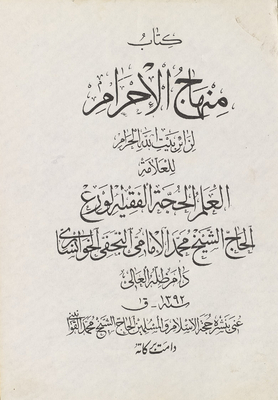 كتاب
منهاج الإحرام
لزائر بيت الله الحرام
للعلامة
العلم الحجة الفقيه الورع
الحاج الشيخ محمد الإمامي النجفي الخوانساري
دام ظله العالي
سنة ١٣٩٢ - ق
عنى بنشره حجة الاسلام والمسلمين الحاج الشيخ محمد
دامت بركاته